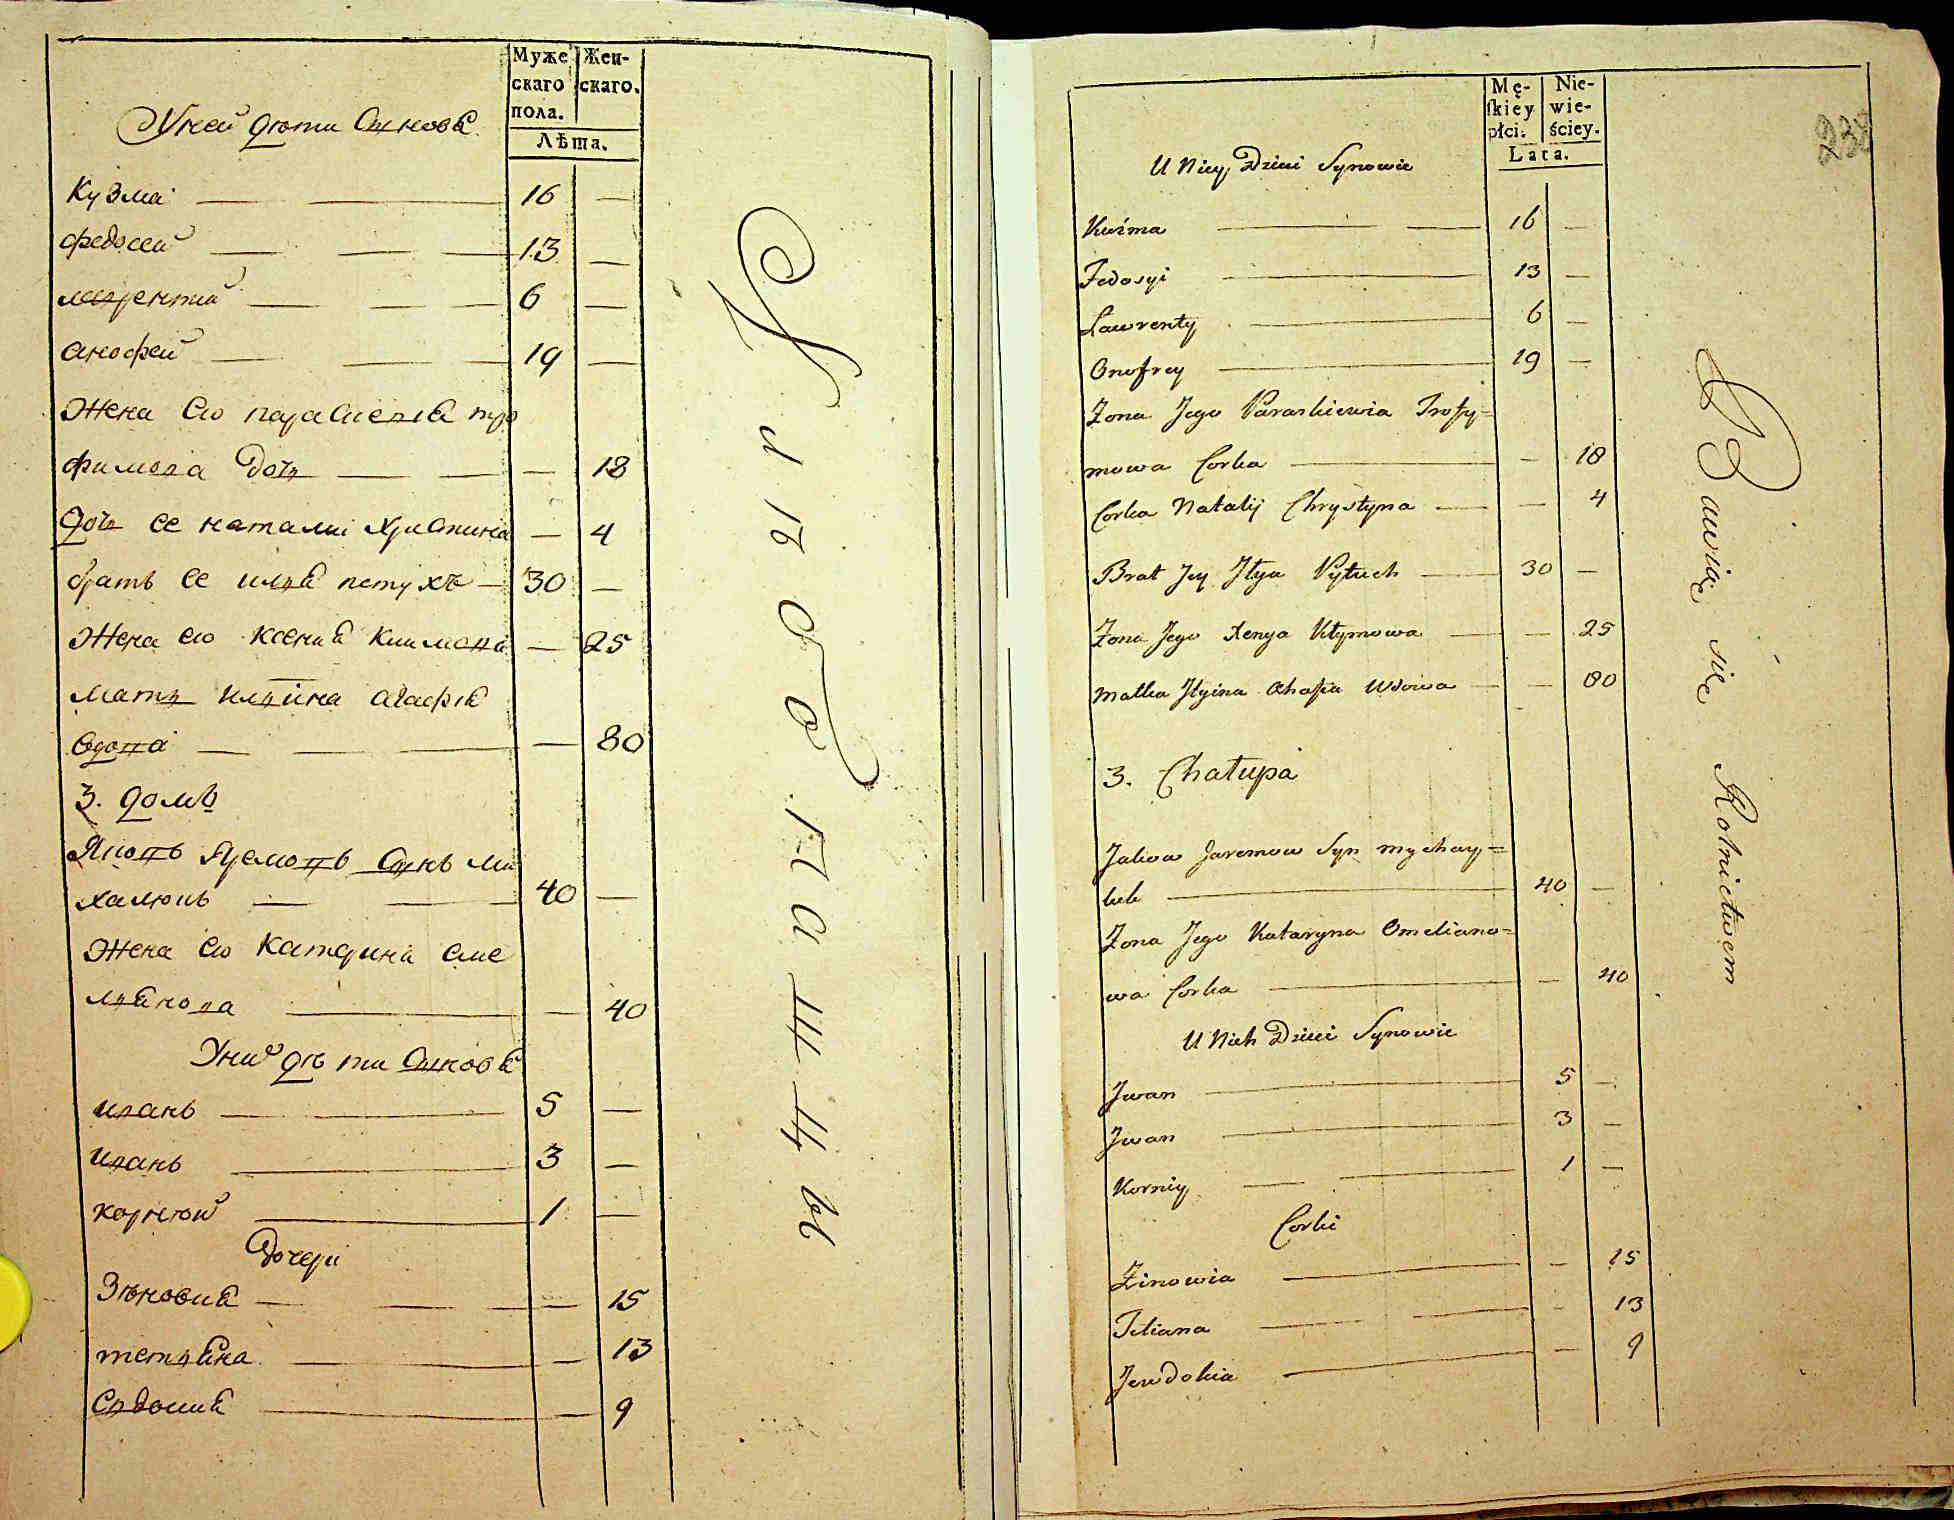 Муже
скаго
пола.
Жен-
скаго.
Лѣта.
У ней дѣти Синовя
Кузма — — 16 —
Федосей — — — 13 —
лаврентий — — 6 —
анофрей — — 19 —
Жена его параскевія тро
фимова дочь — — — 18
дочь ее наталіи христина — 4
братъ ее илля петухъ — 30 —
Жена его ксения климова — 25
мать иллина агафія
вдова — — — — 80
3. домъ
Яковъ Яремовъ Синъ ми
халюкъ — — 40 —
Жена его катерина еме
лянова — — 40
У них дѣти Синовя
иванъ — 5 —
иванъ — 3 —
корнюй — 1 —
Дочери
Зѣновия — — — — 15
тетяна — — 13
Евдокия — — 9
Хлѣборо
паши
Mę-
ſkiey
płci.
Nie-
wie-
ściey.
Lata.
238
U Niey Dzieci Synowie
Kuźma — — 16 —
Fedosyi — 13 —
Lawrenty — 6 —
Onofrey — 19 —
Żona Jego Paraskiewia Trofy=
mowa Corka — — 18
Corka Natalij Chrystyna — — 4
Brat Jey Jłya Pytuch — 30 —
Żona Jego Xenya Kłymowa — — 25
Matka Jłyina Ahafia Wdowa — — 80
3. Chałupa
Jakow Jaremow Syn Mychay=
luk — 40 —
Żona Jego Kataryna Omeliano=
wa Corka — — 40
U Nich Dzieci Synowie
Jwan — 5 —
Jwan — 3 —
Korniy — — 1 —
Corki
Zinowia — — 15
Tetiana — — — 13
Jewdokia — — 9
Bawiąc się Rolnictwem